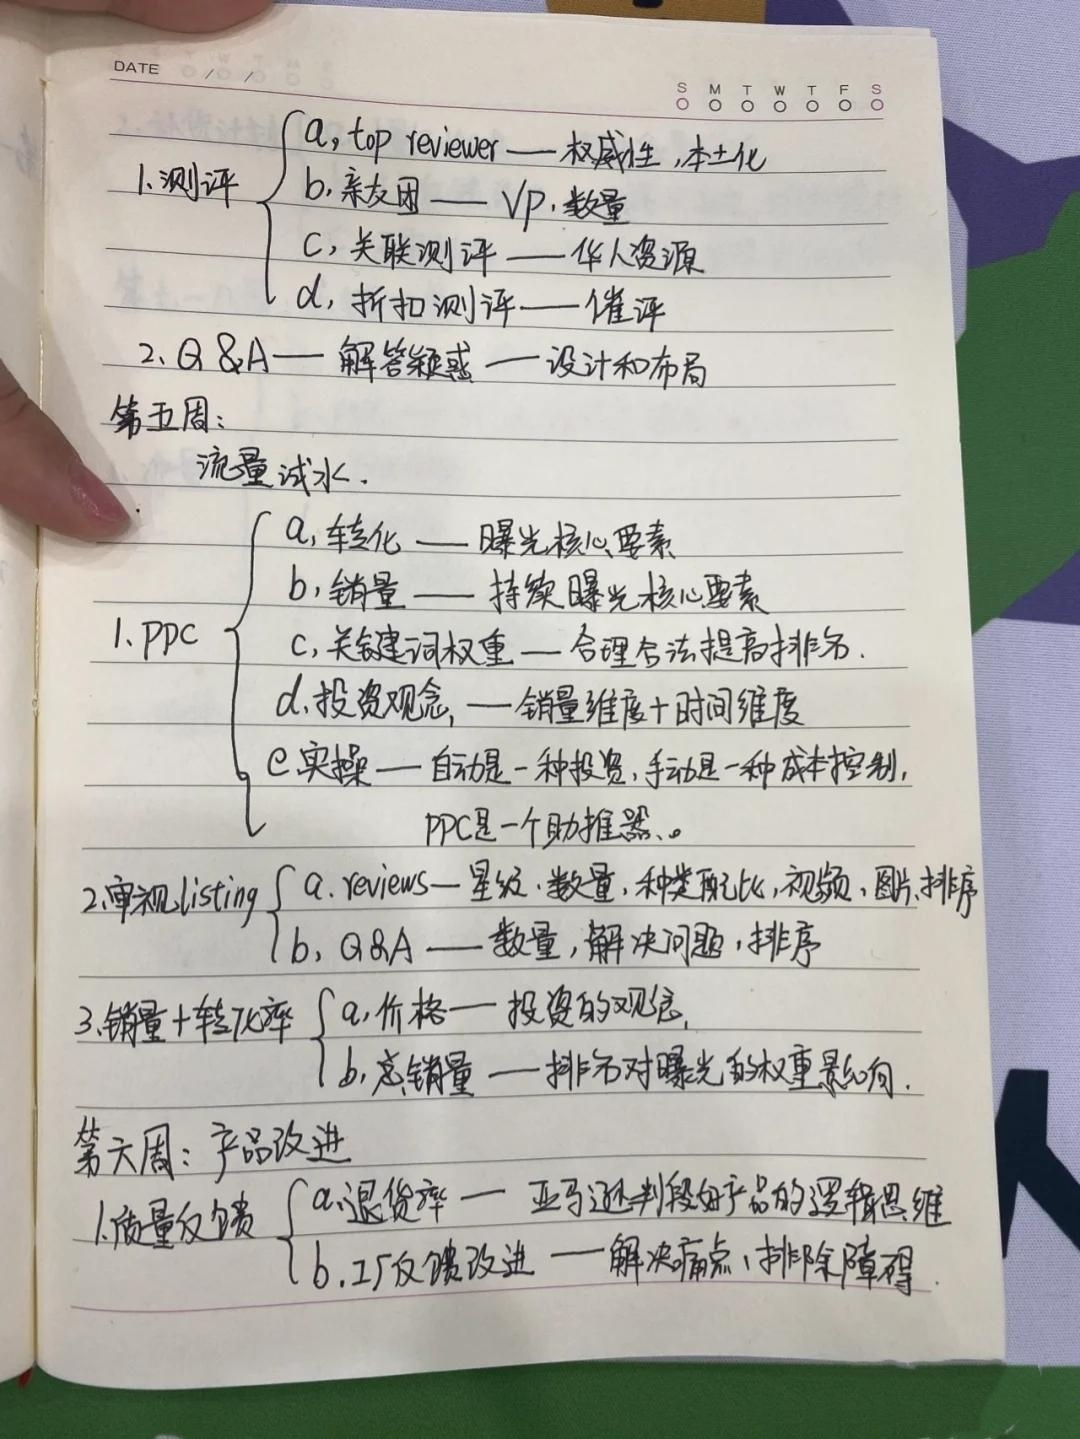 DATE / /
S M T W T F S
1.测评
a, top reviewer — 权威性,本土化
b.亲友团 — VP.数量
c,关联测评 — 华人资源
d,折扣测评 — 催评
2.Q&A — 解答疑惑 — 设计和布局
第五周:
流量试水.
1.PPC
a,转化 — 曝光核心要素
b,销量 — 持续曝光核心要素
c,关键词权重 — 合理合法提高排名.
d.投资观念, — 销量维度+时间维度
e实操 — 自动是一种投资,手动是一种成本控制,
PPC是一个助推器、。
2.审视listing
a.reviews — 星级.数量,种类配比,视频、图片、排序
b,Q&A — 数量,解决问题,排序
3.销量+转化率
a,价格 — 投资的观念,
b,总销量 — 排名对曝光的权重影响.
第六周:产品改进
1.质量反馈
a.退货率 — 亚马逊判段好产品的逻辑思维
b.工厂反馈改进 — 解决痛点、排除障碍.